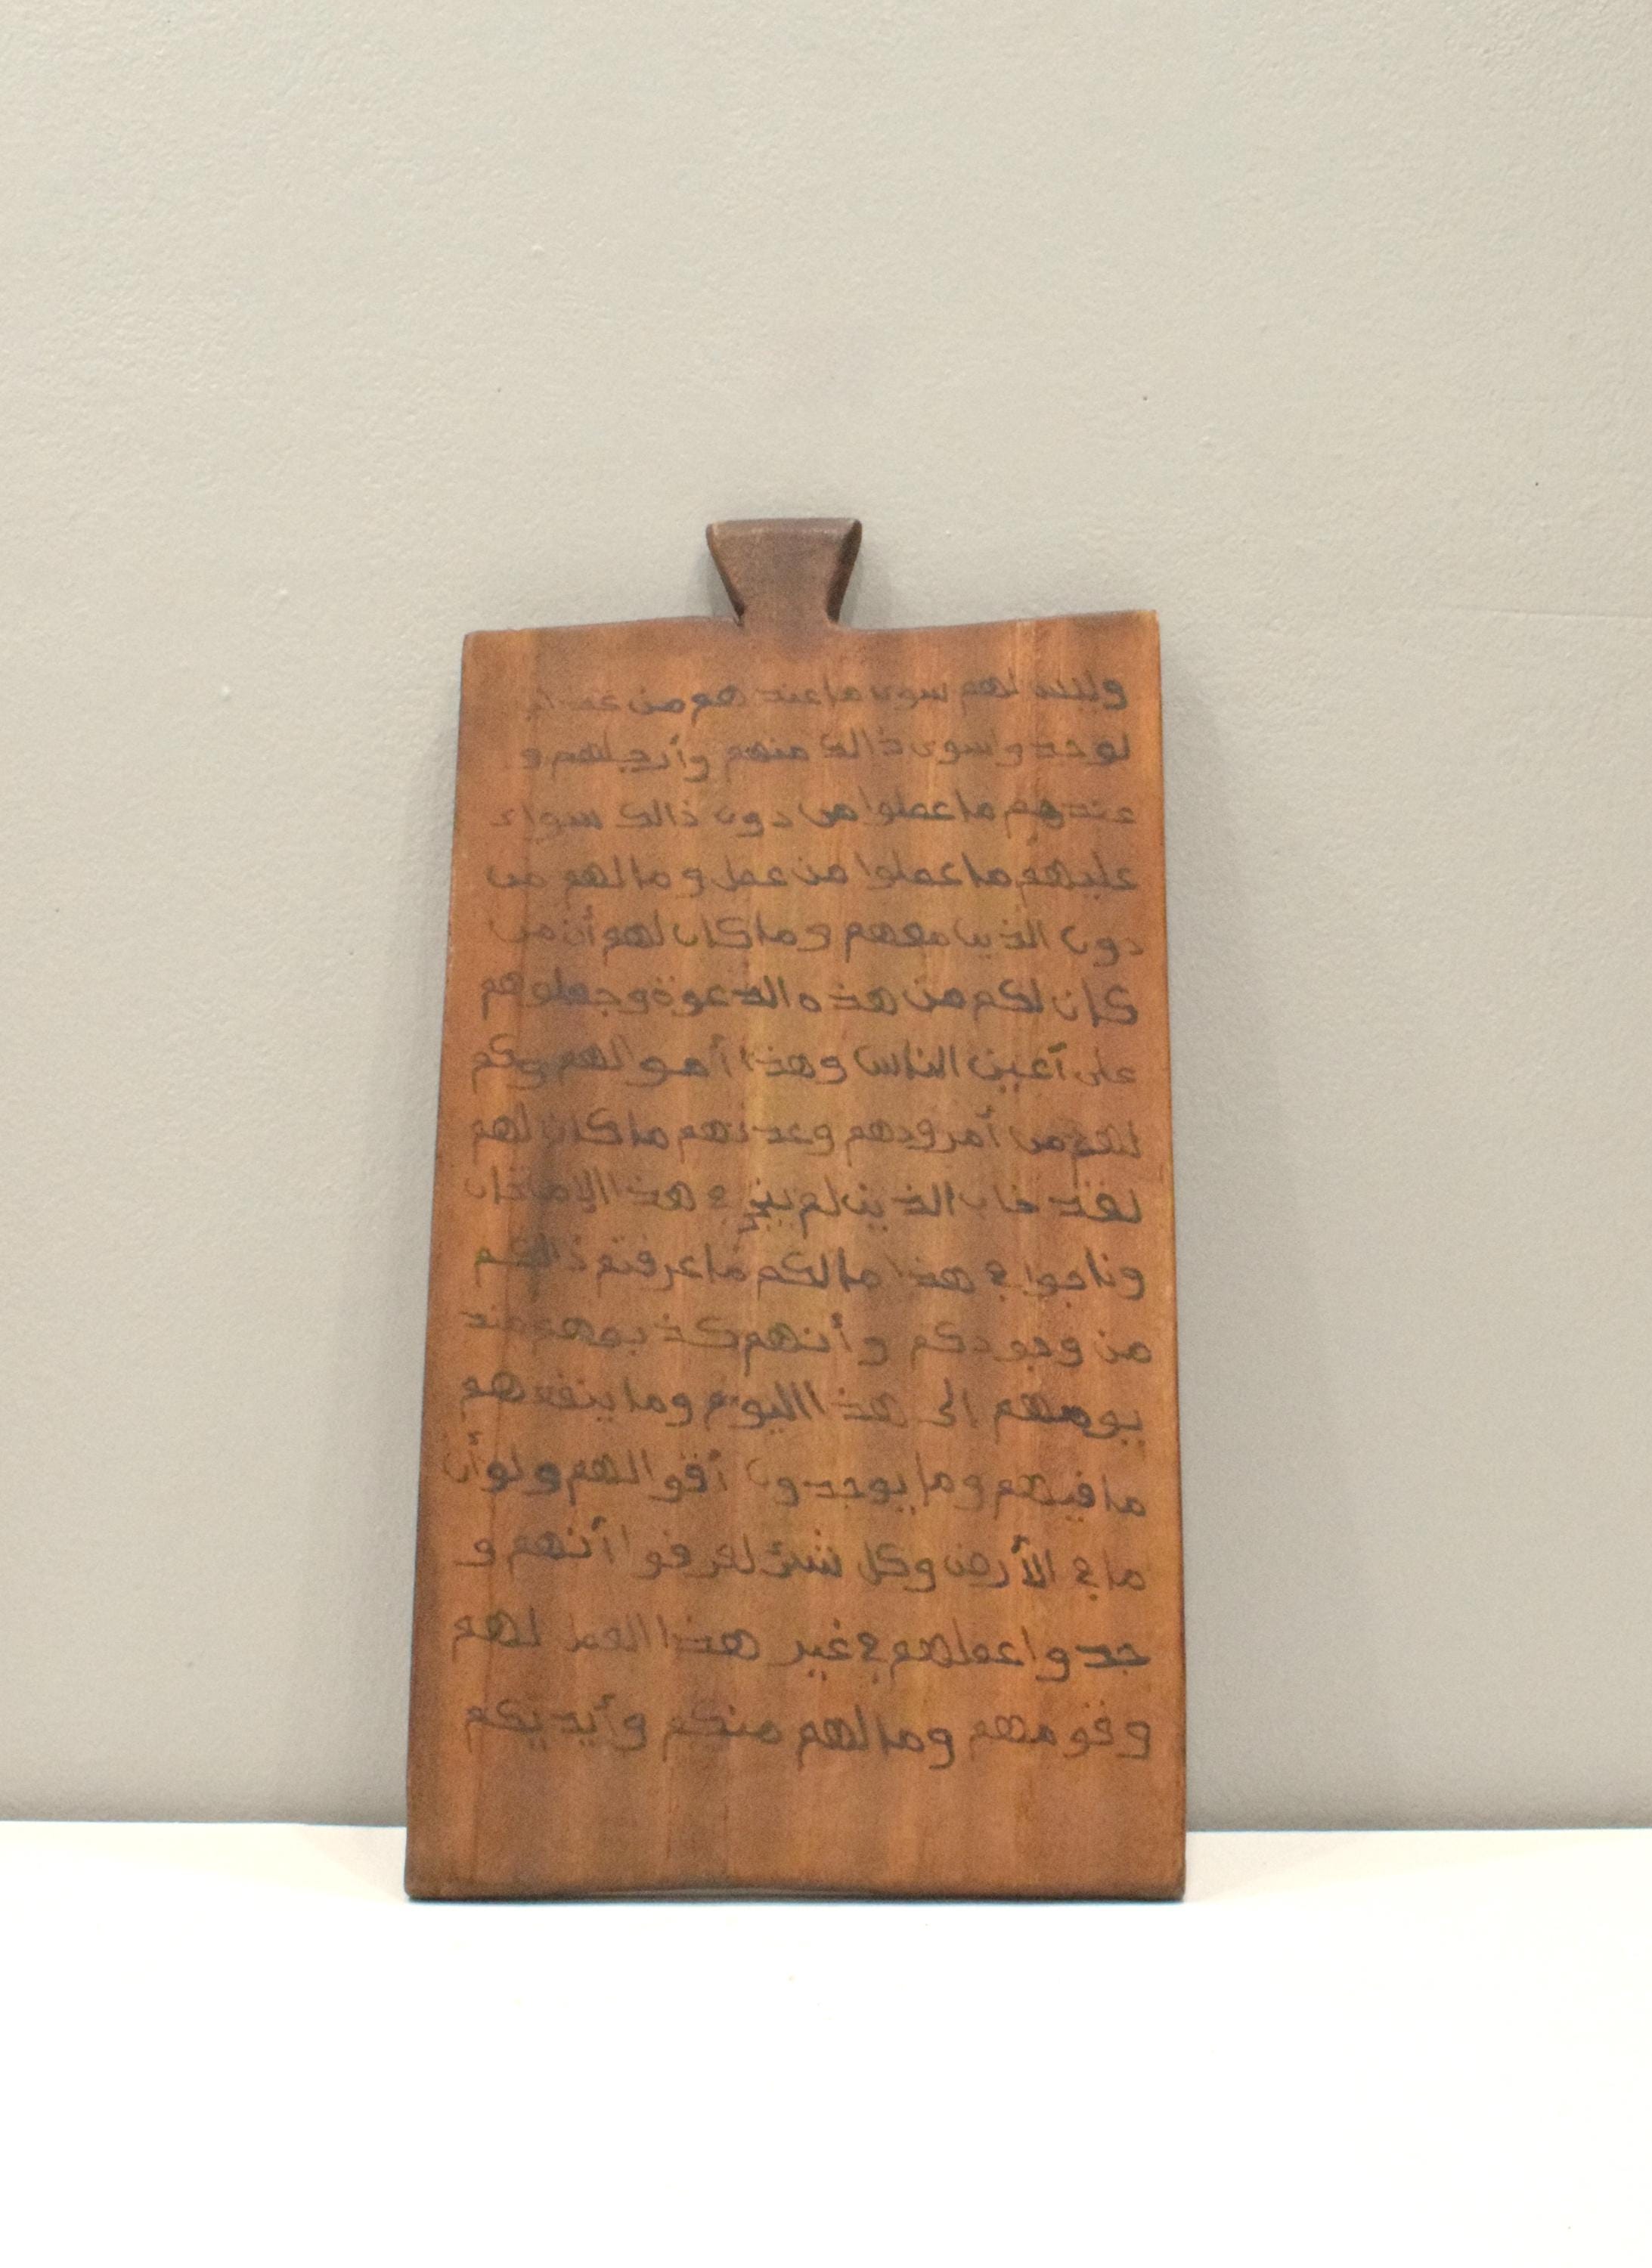 وليس لهم سوى ما عندهم من عند
لوجدوا سوى ذالك منهم وأرجلهم و
عندهم ما عملوا من دون ذالك سواء
عليهم ما عملوا من عمل و ما لهم من
دون الذين معهم و ما كان لهم أن من
كان لكم من هذه الدعوة وجعلوهم
على أعين الناس وهذا أموالهم وكم
لهم من أمر ودهم وعندهم ما كان لهم
لقد خاب الذين لم في هذا الإمتحان
وناجوا في هذا ما لكم ما عرفتم ذالكم
من وجودكم وأنهم كذبوهم عند
يومهم الى هذا اليوم وما ينفعهم
ما فيهم وما يوجدون أقوالهم ولو أن
ما في الأرض وكل شئ لعرفوا أنهم و
جدوا عملهم في غير هذا العمل لهم
وقومهم وما لهم منكم وأيديكم